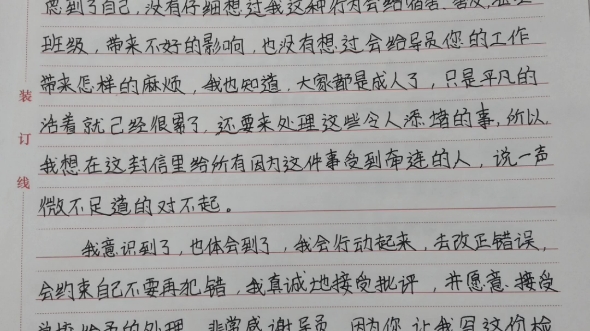 虑到了自己,没有仔细想过我这种行为会给宿舍、
班级,带来不好的影响,也没有想过会给导员您的工作
带来怎样的麻烦,我也知道,大家都是成人了,只是平凡的
装
活着就已经很累了,还要来处理这些令人添堵的事,所以
订
我想在这封信里给所有因为这件事受到牵连的人,说一声
线
微不足道的对不起。
我意识到了,也体会到了,我会行动起来,去改正错误,
会约束自己不要再犯错,我真诚地接受批评,并愿意接受
给予的处理,非常感谢导员,因为你让我写这份检